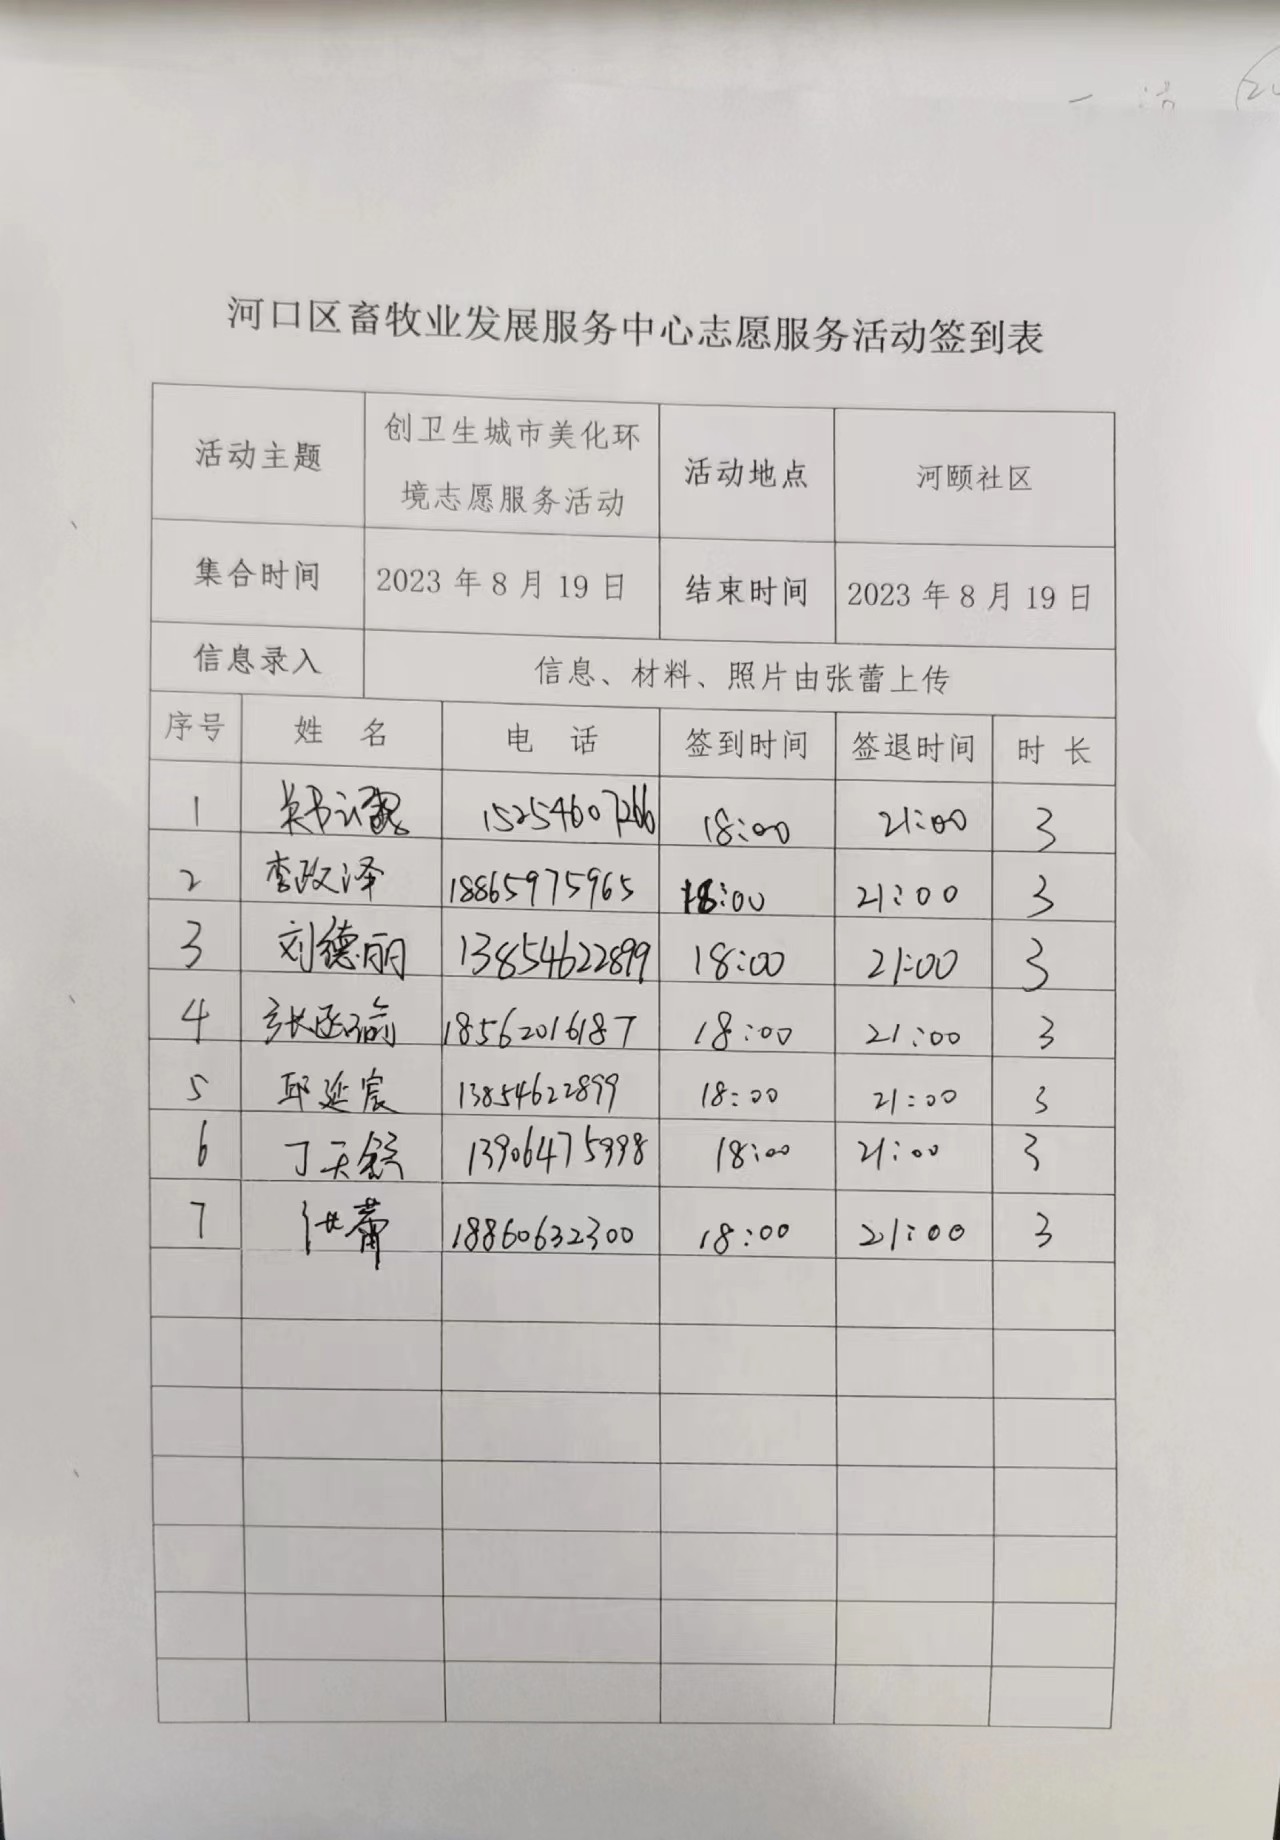 河口区畜牧业发展服务中心志愿服务活动签到表
活动主题 创卫生城市美化环境志愿服务活动 活动地点 河颐社区
集合时间 2023 年 8 月 19 日 结束时间 2023 年 8 月 19 日
信息录入 信息、材料、照片由张蕾上传
序号 姓 名 电 话 签到时间 签退时间 时 长
1 15254607266 18:00 21:00 3
2 李政泽 18865975965 18:00 21:00 3
3 刘德丽 13854622899 18:00 21:00 3
4 张函瑜 18562016187 18:00 21:00 3
5 邱延宸 13854622899 18:00 21:00 3
6 丁天 13906475998 18:00 21:00 3
7 18860632300 18:00 21:00 3